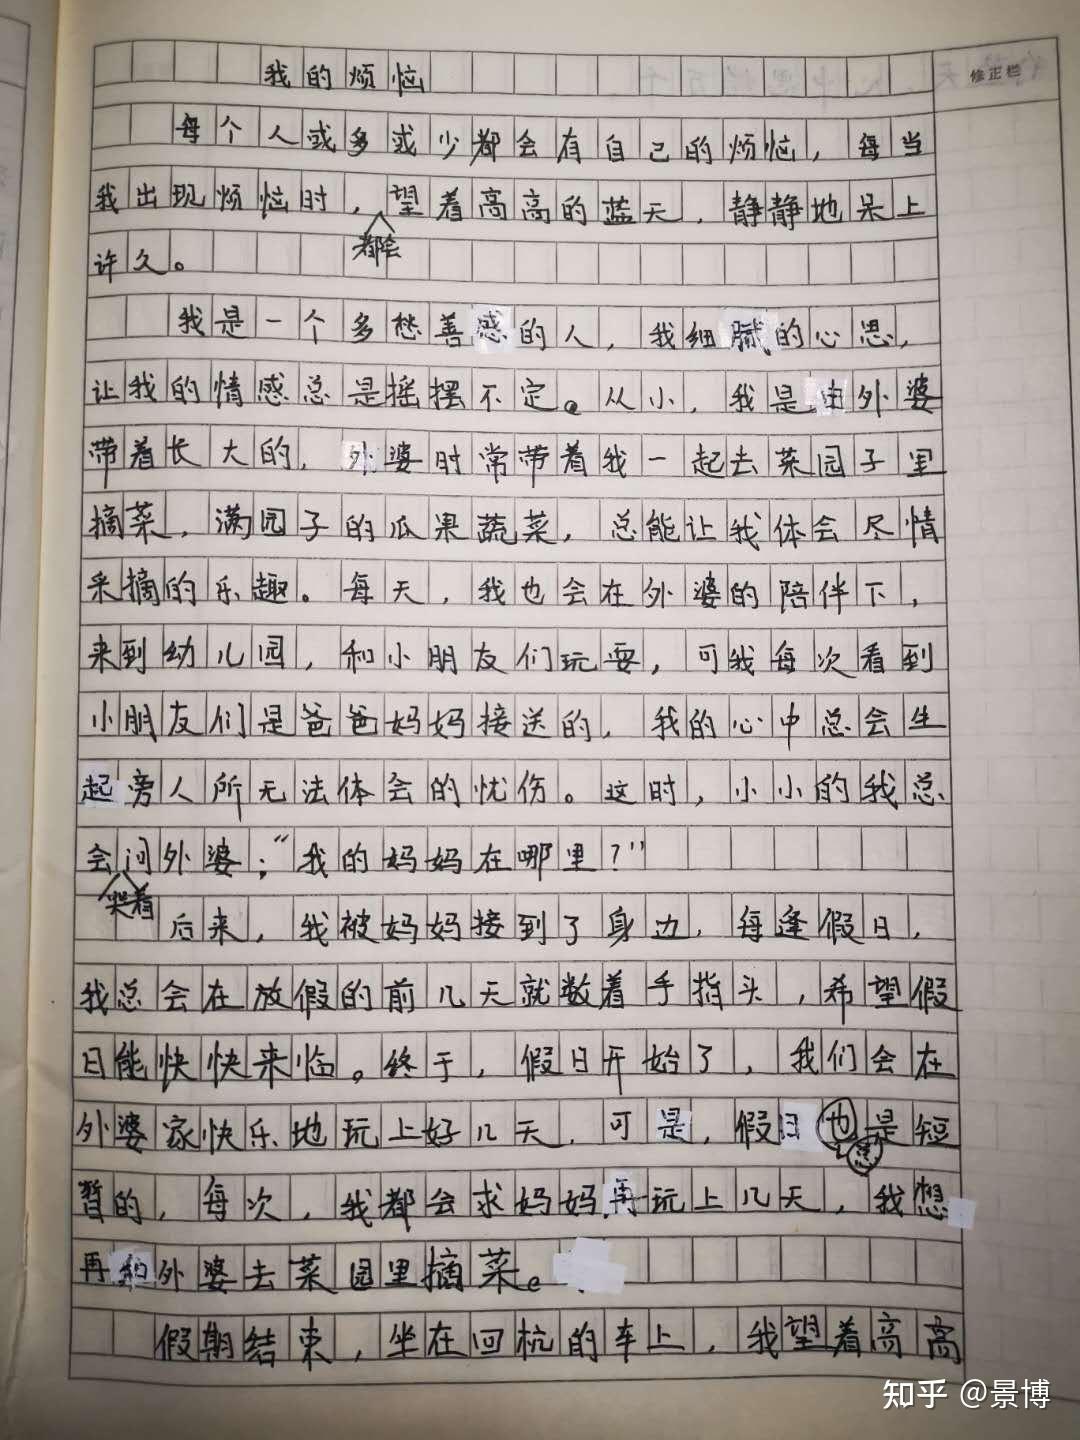 我的烦恼
修正栏
每个人或多或少都会有自己的烦恼，每当
我出现烦恼时，都会望着高高的蓝天，静静地呆上
许久。
我是一个多愁善感的人，我细腻的心思，
让我的情感总是摇摆不定。从小，我是由外婆
带着长大的，外婆时常带着我一起去菜园子里
摘菜，满园子的瓜果蔬菜，总能让我体会尽情
采摘的乐趣。每天，我也会在外婆的陪伴下，
来到幼儿园，和小朋友们玩耍，可我每次看到
小朋友们是爸爸妈妈接送的，我的心中总会生
起旁人所无法体会的忧伤。这时，小小的我总
会哭着问外婆：“我的妈妈在哪里？”
后来，我被妈妈接到了身边，每逢假日，
我总会在放假的前几天就数着手指头，希望假
日能快快来临。终于，假日开始了，我们会在
外婆家快乐地玩上好几天，可是，假日总是短
暂的，每次，我都会求妈妈再玩上几天，我想
再和外婆去菜园里摘菜。
假期结束，坐在回杭的车上，我望着高高
知乎 @景博